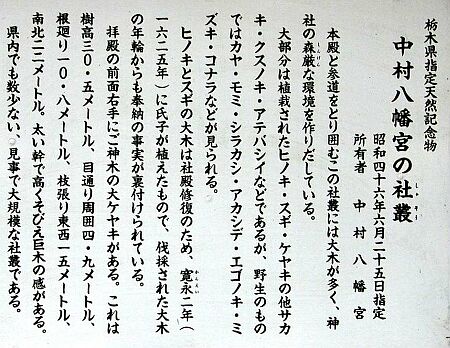 栃木県指定天然記念物
中村八幡宮の社叢
しゃそう
昭和四十六年六月二十五日指定
所有者　中村八幡宮
本殿と参道をとり囲むこの社叢には大木が多く、神
社の森厳な環境を作りだしている。
しんげん
大部分は植栽されたヒノキ・スギ・ケヤキの他サカ
キ・クスノキ・アテバシイなどであるが、野生のもの
ではカヤ・モミ・シラカシ・アカシデ・エゴノキ・ミ
ズキ・コナラなどが見られる。
ヒノキとスギの大木は社殿修復のため、寛永二年（
かんえい
一六二五年）に氏子が植えたもので、伐採された大木
の年輪からも奉納の事実が裏付けられている。
拝殿の前面右手にご神木の大ケヤキがある。これは
樹高三０・五メートル、目通り周囲四・九メートル、
根廻り一０・八メートル、枝張り東西一五メートル、
南北二二メートル。太い幹で高くそびえ巨木の感がある。
県内でも数少ない、見事で大規模な社叢である。